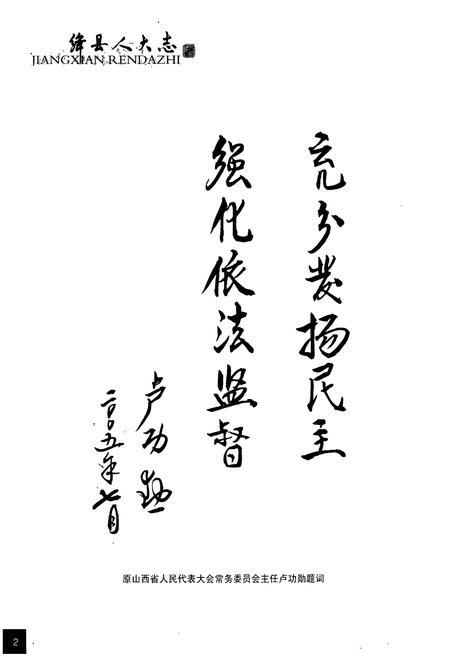 绛县人大志
JIANGXIAN RENDAZHI
充分发扬民主
强化依法监督
卢功勋
二〇〇五年七月
原山西省人民代表大会常务委员会主任卢功勋题词
2